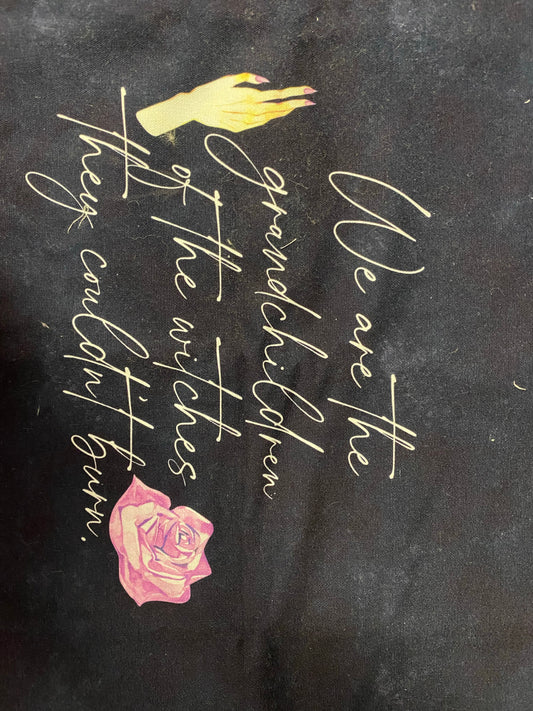 We are the
grandchildren
of the witches
they couldn't burn.